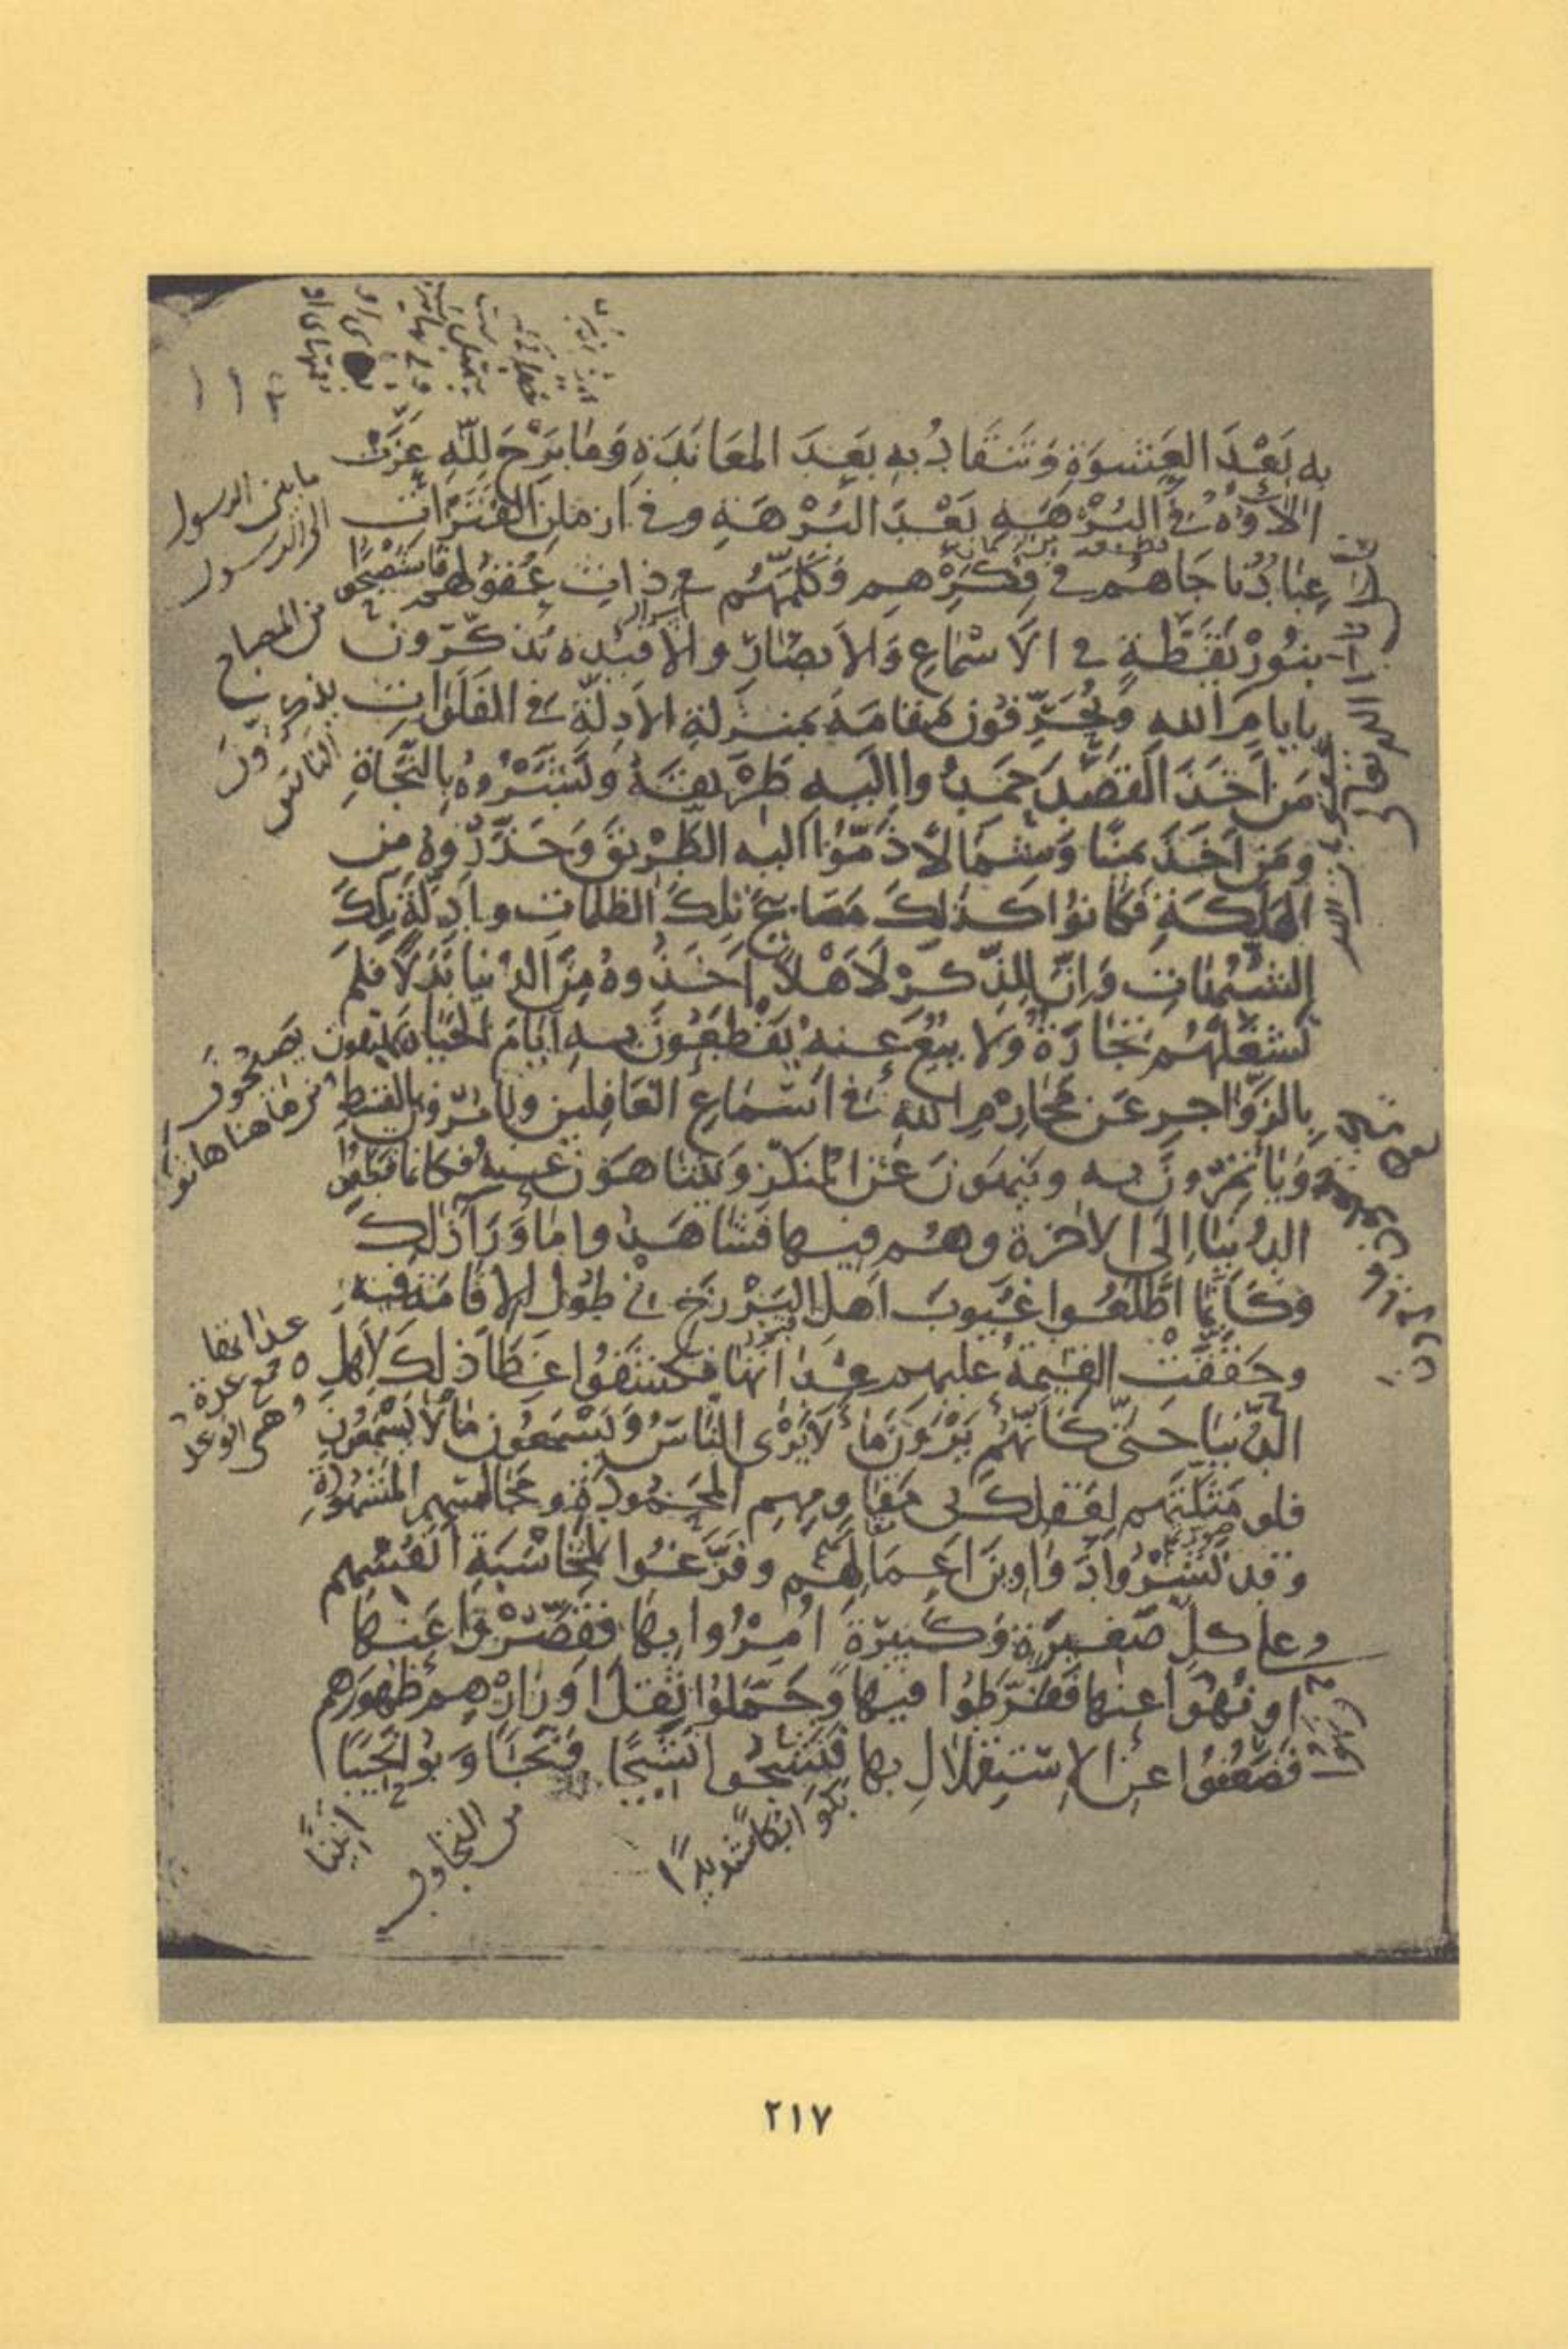 به بَعْدَ العَشْوَةِ وَتَنْقَادُ بهِ بَعْدَ المعَانَدَةِ وَمَا بَرَحَ لِلّهِ عَزَّتْ
الآؤُهُ فِي البُرْهَةِ بَعْدَ البُرْهَةِ وفي ازمانِ الفَتَرَاتِ
عِبَادٌ نَاجَاهُم في فِكْرِهم وَكَلَّمَهُم في ذاتِ عُقُولهم فَاسْتَصْبَحُوا
بنُورِ يَقَظَةٍ في الأَسْمَاعِ وَالأَبصَارِ والأفئِدة يُذَكِّرُونَ
بايامِ الله وَيُخَوِّفُونَ مَقَامَهُ بمنزلةِ الأَدِلَّةِ في الفَلَوَاتِ
مَن أَخَذَ القَصْدَ حَمِدُوا اليهِ طَرِيقَهُ وبَشَّرُوهُ بِالنَّجَاةِ
ومَن اخَذَ يمينًا وَشِمَالًا ذَمُّوا اليه الطَّرِيقَ وَحَذَّرُوهُ مِن
الهَلَكَةِ فكانوُا كذلِكَ مَصَابيحَ تِلكَ الظلماتِ وأدِلَّةَ تِلكَ
الشُّبُهَاتِ وَإِنَّ لِلذِّكْرِ لَأَهْلًا أَخَذُوهُ مِنَ الدُنيا بَدَلًا فَلَم
تَشْغَلْهُم تِجَارَةٌ وَلا بَيْعٌ عَنهُ يَقْطَعُونَ بهِ أيَّامَ الحَيَاةِ وَيَهْتِفُونَ
بالزَّوَاجرِ عَن مَحَارِمِ اللهِ في أَسْمَاعِ الغَافِلينَ ويَأمُرُونَ بالقِسْطِ
وَيَأْتَمِرُونَ به ويَنهَونَ عَنِ المُنكَرِ وَيَتَناهَوْنَ عَنهُ فكَأنما قَطَعُوا
الدُنيَا إِلَى الآخِرَةِ وهُم فيها فَشَاهَدُوا مَا وَرَآءَ ذلِكَ
فكَأَنَّما اطَّلَعُوا غُيُوبَ أَهلِ البَرْزَخِ في طُولِ الإِقَامَةِ فيهِ
وحَقَّقَتِ القِيمَةُ عليهِم عِدَاتِهَا فكَشَفُوا غِطَاءَ ذلِكَ لِأَهْلِ
الدُّنيَا حَتَّى كَأَنَّهُم يَرَوْنَ مَا لَا يَرَى النَّاسُ وَيَسْمَعُونَ مَا لَا يَسْمَعُونَ
فلو مَثَّلْتَهم لِعَقْلِكَ في مَقَاوِمِهِم المَحْمُودَةِ ومَجَالِسِهِم المَشْهُودَةِ
وقد نَشَرُوا دَوَاوِينَ أَعْمَالِهُم وفَرَغُوا لِمُحَاسَبَةِ أَنْفُسِهِم
وعلى كلِّ صَغيرَةٍ وَكَبيرَةٍ أُمِرُوا بها فقَصَّرُوا عَنها
او نُهُوا عنها فَفَرَّطُوا فيها وَحَمَّلُوا ثِقَلَ أَوْزَارِهِم ظُهُورَهم
فَضَعُفُوا عن الإسْتِقْلَالِ بها فَنَشَجُوا نَشِيجًا وَتَجَاوَبُوا نَحِيبًا
ما بين الرسول
الى الرسول
من المصباح
يذكرون
الناس
يصيحون
من ها هنا هاتوا
عدا تها
جمع عدة
وهي الوعد
بكوا بكاء شديدًا
من التجاوب
انينًا
٢١٧